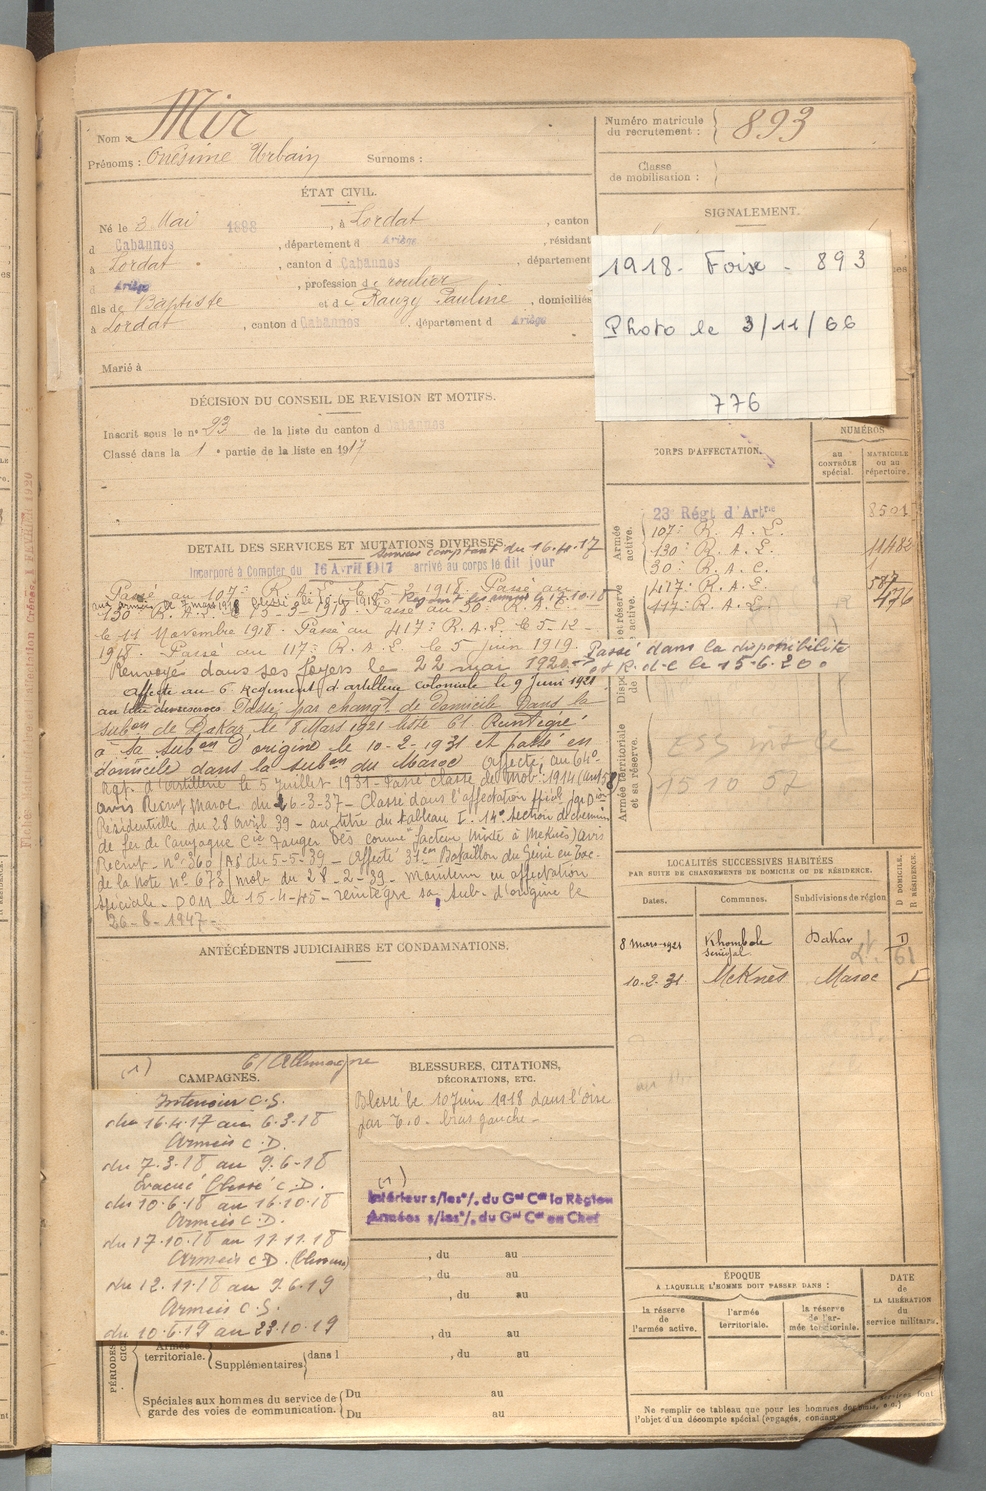 Nom : Mir
Prénoms : Onésime Urbain Surnoms :
Numéro matricule
du recrutement : 893
Classe
de mobilisation :
ÉTAT CIVIL.
Né le 3 Mai 1898, à Lordat, canton
d Cabannes, département d Ariège, résidant
à Lordat, canton d Cabannes, département
d Ariège, profession de roulier
fils de Baptiste et de Rauzy Pauline, domiciliés
à Lordat, canton d Cabannes, département d Ariège
Marié à
SIGNALEMENT.
1918 - Foix - 893
Photo le 3/11/66
776
DÉCISION DU CONSEIL DE REVISION ET MOTIFS.
Inscrit sous le n° 23 de la liste du canton d Cabannes
Classé dans la 1e partie de la liste en 1917
CORPS D'AFFECTATION.
NUMÉROS
au
CONTRÔLE
spécial.
MATRICULE
ou au
répertoire.
Armée
active.
23 Régt d'Artrie
107e R. A. L.
130e R. A. L. 11482
30e R. A. C.
417e R. A. L. 587
117e R. A. L. 476
DÉTAIL DES SERVICES ET MUTATIONS DIVERSES.
Services comptant du 16.4.17
Incorporé à Compter du 16 Avril 1917 arrivé au corps le dit jour
Passé au 107e R. A. L. le 5 2 1918. Passé au
aux armées le 7 mars 1918 blessé le 10-6-1918 Rejoint les armées le 17.10.18
130e R. A. L. le 1918 - Passé au 30e R. A. C.
le 11 Novembre 1918 - Passé au 417e R. A. L. le 5-12-
1918 - Passé au 117e R. A. L. le 5 juin 1919.
Passé dans la disponibilité
et R. d. l. le 15-6-20.
Renvoyé dans ses foyers le 22 mai 1920
Affecté au 6e Régiment d'artillerie coloniale le 9 Juin 1921
Passé par changt de domicile dans la
subon de Dakar, le 8 Mars 1921 liste 61 Réintégré
à sa subon d'origine le 10-2-1931 et passé en
domicile dans la subon du Maroc Affecté au 64e
Rgt d'artillerie le 5 Juillet 1931 - Passé classe de mob. 1914
avis Recrut maroc du 26-3-37 - Classé dans l'affectation spéciale par Don
Résidentielle du 28 avril 39 - au titre du tableau I. 14e Section de chemins
de fer de Campagne Cie Tanger Fès comme "facteur mixte à Meknès" avis
Recrut - n° 360/AS du 5-5-39 - Affecté 31em Bataillon du Génie en exc.
de la Note n° 673/mob du 28-2-39 - Maintenu en affectation
spéciale - DOM le 15-4-45 - réintègre sa sub. d'origine le
26-8-1947 -
Armée territoriale
et sa réserve.
15 10 52
LOCALITÉS SUCCESSIVES HABITÉES
PAR SUITE DE CHANGEMENTS DE DOMICILE OU DE RÉSIDENCE.
Dates. Communes. Subdivisions de région
D DOMICILE.
R RÉSIDENCE.
8 Mars-1921 Khombole Sénégal Dakar D 61
10.2.31 Meknès Maroc
ANTÉCÉDENTS JUDICIAIRES ET CONDAMNATIONS.
(1) C/ Allemagne
CAMPAGNES.
Intérieur C.S.
du 16.4.17 au 6.3.18
Armées C.D.
du 7.3.18 au 9.6.18
Evacué blessé C.D.
du 10.6.18 au 16.10.18
Armées C.D.
du 17.10.18 au 11.11.18
Armées C.D. (blessure)
du 12.11.18 au 9.6.19
Armées C.S.
du 10.6.19 au 23.10.19
BLESSURES, CITATIONS,
DÉCORATIONS, ETC.
Blessé le 10 juin 1918 dans l'oise
par E.O. bras gauche -
(1)
Intérieur s/les o/. du Gal Ct la Région
Armées s/les o/. du Gal Ct en Chef
, du au
, du au
, du au
, du au
PÉRIODES
Armée
territoriale. Supplémentaires dans l , du au
Spéciales aux hommes du service de
garde des voies de communication.
Du au
Du au
ÉPOQUE
À LAQUELLE L'HOMME DOIT PASSER DANS :
la réserve
de
l'armée active.
l'armée
territoriale.
la réserve
de l'ar-
mée territoriale.
DATE
de
LA LIBÉRATION
du
service militaire.
Ne remplir ce tableau que pour les hommes dont les services font
l'objet d'un décompte spécial (engagés,